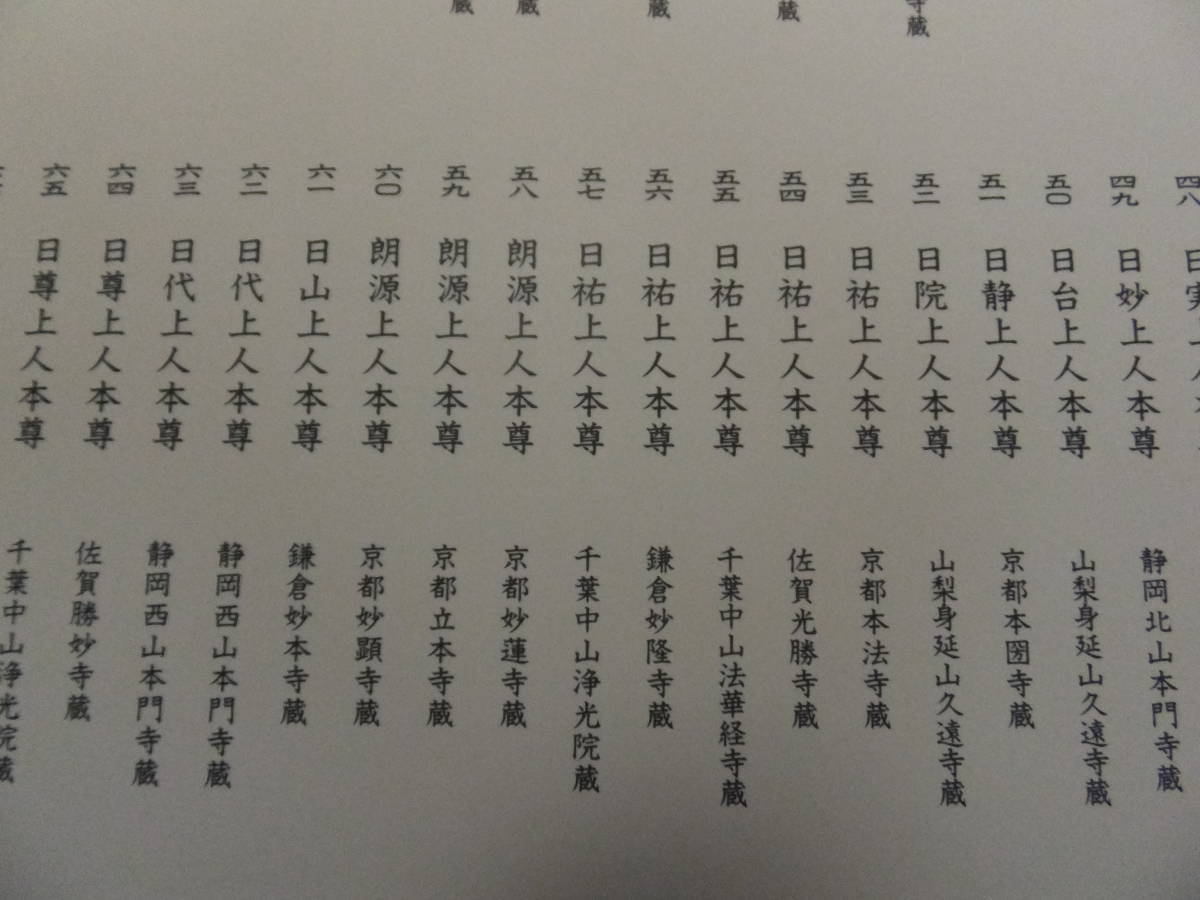 寺蔵
蔵
蔵
蔵
蔵
四八 日実上人
四九 日妙上人本尊 静岡北山本門寺蔵
五〇 日台上人本尊 山梨身延山久遠寺蔵
五一 日静上人本尊 京都本圀寺蔵
五二 日院上人本尊 山梨身延山久遠寺蔵
五三 日祐上人本尊 京都本法寺蔵
五四 日祐上人本尊 佐賀光勝寺蔵
五五 日祐上人本尊 千葉中山法華経寺蔵
五六 日祐上人本尊 鎌倉妙隆寺蔵
五七 日祐上人本尊 千葉中山浄光院蔵
五八 朗源上人本尊 京都妙蓮寺蔵
五九 朗源上人本尊 京都立本寺蔵
六〇 朗源上人本尊 京都妙顕寺蔵
六一 日山上人本尊 鎌倉妙本寺蔵
六二 日代上人本尊 静岡西山本門寺蔵
六三 日代上人本尊 静岡西山本門寺蔵
六四 日尊上人本尊 佐賀勝妙寺蔵
六五 日尊上人本尊 千葉中山浄光院蔵